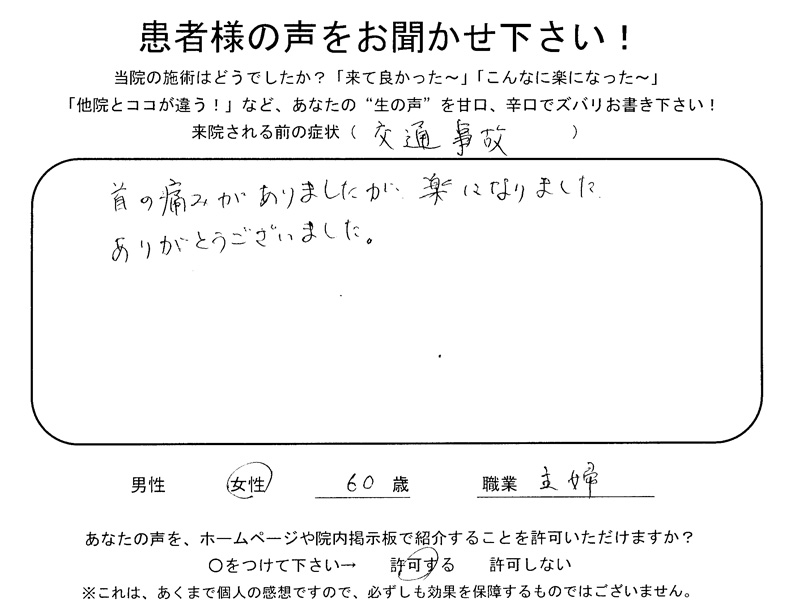 患者様の声をお聞かせ下さい！
当院の施術はどうでしたか？「来て良かった～」「こんなに楽になった～」
「他院とココが違う！」など、あなたの“生の声”を甘口、辛口でズバリお書き下さい！
来院される前の症状（ 交通事故 ）
首の痛みがありましたが、楽になりました。
ありがとうございました。
男性 女性 60 歳 職業 主婦
あなたの声を、ホームページや院内掲示板で紹介することを許可いただけますか？
〇をつけて下さい→ 許可する 許可しない
※これは、あくまで個人の感想ですので、必ずしも効果を保障するものではございません。